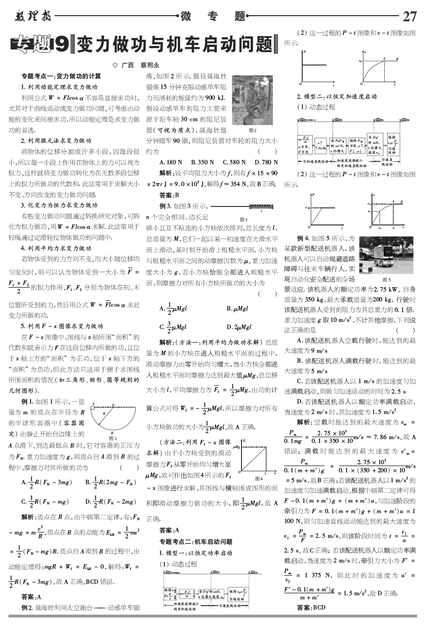 数理报
微 专 题
27
专题19 变力做功与机车启动问题
◎ 广西 蔡熙永
专题考点一:变力做功的计算
1. 利用动能定理求变力做功
利用公式 W = Flcosα 不容易直接求功时,
尤其对于曲线运动或变力做功问题,可考虑由动
能的变化来间接求功,所以动能定理是求变力做
功的首选.
2. 利用微元法求变力做功
将物体的位移分割成许多小段,因每段很
小,所以每一小段上作用在物体上的力可以视为
恒力,这样就将变力做功转化为在无数多段位移
上的恒力所做功的代数和.此法常用于求解大小
不变、方向改变的变力做功问题.
3. 化变力为恒力求变力做功
有些变力做功问题通过转换研究对象,可转
化为恒力做功,用 W = Flcosα 求解.此法常用于
轻绳通过定滑轮拉物体做功的问题中.
4. 利用平均力求变力做功
若物体受到的力方向不变,而大小随位移均
匀变化时,则可以认为物体受到一大小为 F̄ =
(F₁ + F₂)/2 的恒力作用,F₁、F₂ 分别为物体在初、末
位置所受到的力,然后用公式 W = F̄lcosα 求此
变力所做的功.
5. 利用 F - x 图像求变力做功
在 F - x 图像中,图线与 x 轴所围“面积”的
代数和就表示力 F 在这段位移内所做的功,且位
于 x 轴上方的“面积”为正功,位于 x 轴下方的
“面积”为负功,但此方法只适用于便于求图线
所围面积的情况(如三角形、矩形、圆等规则的
几何图形).
例 1. 如图 1 所示,一质
量为 m 的质点在半径为 R
的半球形容器中(容器固
定)由静止开始自边缘上的
图1
A 点滑下,到达最低点 B 时,它对容器的正压力
为 F_N. 重力加速度为 g,则质点自 A 滑到 B 的过
程中,摩擦力对其所做的功为
A. 1/2 R(F_N - 3mg)  B. 1/2 R(2mg - F_N)
C. 1/2 R(F_N - mg)  D. 1/2 R(F_N - 2mg)
解析:质点在 B 点,由牛顿第二定律,有:F_N
- mg = m v²/R,质点在 B 点的动能为 E_kB = 1/2 mv²
= 1/2 (F_N - mg)R. 质点自 A 滑到 B 的过程中,由
动能定理得:mgR + W_f = E_kB - 0,解得:W_f =
1/2 R(F_N - 3mg),故 A 正确,BCD 错误.
答案:A
例 2. 聂海胜利用太空跑台——动感单车锻
炼,如图 2 所示. 假设聂海胜
锻炼 15 分钟克服动感单车阻
力而消耗的能量约为 900 kJ.
假设动感单车的阻力主要来
源于距车轴 30 cm 的阻尼装
置(可视为质点),聂海胜每
图2
分钟蹬车 90 圈,则阻尼装置对车轮的阻力大小
约为 ( )
A. 180 N B. 350 N C. 580 N D. 780 N
解析:设平均阻力大小为 f,则有 f × 15 × 90
× 2πr J = 9.0 × 10⁵ J,解得 f ≈ 354 N,故 B 正确.
答案:B
例 3. 如图 3 所示,
n 个完全相同、边长足
图3
够小且互不粘连的小方块依次排列,总长度为 l,
总质量为 M,它们一起以某一初速度在光滑水平
面上滑动,某时刻开始滑上粗糙水平面. 小方块
与粗糙水平面之间的动摩擦因数为 μ,重力加速
度大小为 g,若小方块恰能全部进入粗糙水平
面,则摩擦力对所有小方块所做功的大小为
( )
A. 1/2 μMgl  B. μMgl
C. 3/2 μMgl  D. 2μMgl
解析:(方法一:利用平均力做功求解)总质
量为 M 的小方块在进入粗糙水平面的过程中,
滑动摩擦力由零开始均匀增大,当小方块全部进
入粗糙水平面时摩擦力达到最大值 μMg,总位移
大小为 l,平均摩擦力为 F̄_f = 1/2 μMg,由功的计
算公式可得 W_f = - 1/2 μMgl,所以摩擦力对所有
小方块做功的大小为 1/2 μMgl,故 A 正确.
(方法二:利用 F_f - x 图像
求解)由于小方块受到的滑动
摩擦力 F_f 从零开始均匀增大至
μMg,故可作出如图 4 所示的 F_f
图4
- x 图像进行求解,其图线与横轴围成图形的面
积即滑动摩擦力做功的大小,即 1/2 μMgl,故 A
正确.
答案:A
专题考点二:机车启动问题
1. 模型一:以恒定功率启动
(1) 动态过程
(2) 这一过程的 P - t 图像和 v - t 图像如图
所示.
2. 模型二:以恒定加速度启动
(1) 动态过程
(2) 这一过程的 P - t 图像和 v - t 图像如图
所示.
例 4. 如图 5 所示,为
某款新型配送机器人,该
机器人可以自动规避道路
障碍与往来车辆行人,实
现自动化安全配送的全场
图5
景适应. 该机器人的额定功率为 2.75 kW,自身
质量为 350 kg,最大承载质量为 200 kg,行驶时
该配送机器人受到的阻力为其总重力的 0.1 倍.
重力加速度 g 取 10 m/s²,不计其他摩擦,下列说
法正确的是 ( )
A. 该配送机器人空载行驶时,能达到的最
大速度为 9 m/s
B. 该配送机器人满载行驶时,能达到的最
大速度为 5 m/s
C. 若该配送机器人以 1 m/s² 的加速度匀加
速满载启动,则做匀加速运动的时间为 2.5 s
D. 若该配送机器人以额定功率满载启动,
当速度为 2 m/s 时,其加速度为 1.5 m/s²
解析:空载时能达到的最大速度为 v_m =
P_m/0.1mg = 2.75 × 10³/(0.1 × 350 × 10) m/s ≈ 7.86 m/s,故 A
错误;满载时能达到的最大速度为 v'_m =
P_m/(0.1(m + m')g) = 2.75 × 10³/(0.1 × (350 + 200) × 10) m/s
= 5 m/s,故 B 正确;若该配送机器人以 1 m/s² 的
加速度匀加速满载启动,根据牛顿第二定律可得
F - 0.1(m + m')g = (m + m')a,匀加速阶段的
牵引力为 F = 0.1(m + m')g + (m + m')a = 1
100 N,则匀加速直线运动能达到的最大速度为
v₁ = P_m/F = 2.5 m/s,则该阶段时间为 t = v₁/a =
2.5 s,故 C 正确;若该配送机器人以额定功率满
载启动,当速度为 2 m/s 时,牵引力大小为 F' =
P_m/v₂ = 1 375 N,则此时的加速度为 a' =
(F' - 0.1(m + m')g)/(m + m') = 1.5 m/s²,故 D 正确.
答案:BCD